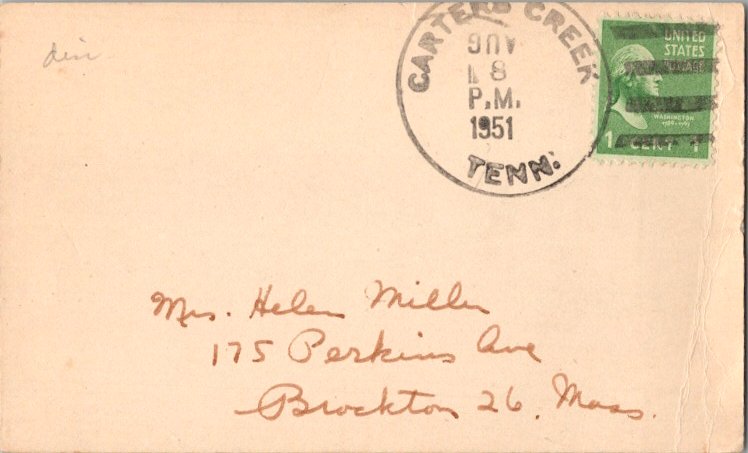 CARTERS CREEK
AUG
8
P.M.
1951
TENN.
UNITED
STATES
WASHINGTON
1 CENT 1
Mrs. Helen Miller
175 Perkins Ave
Brockton 26. Mass.